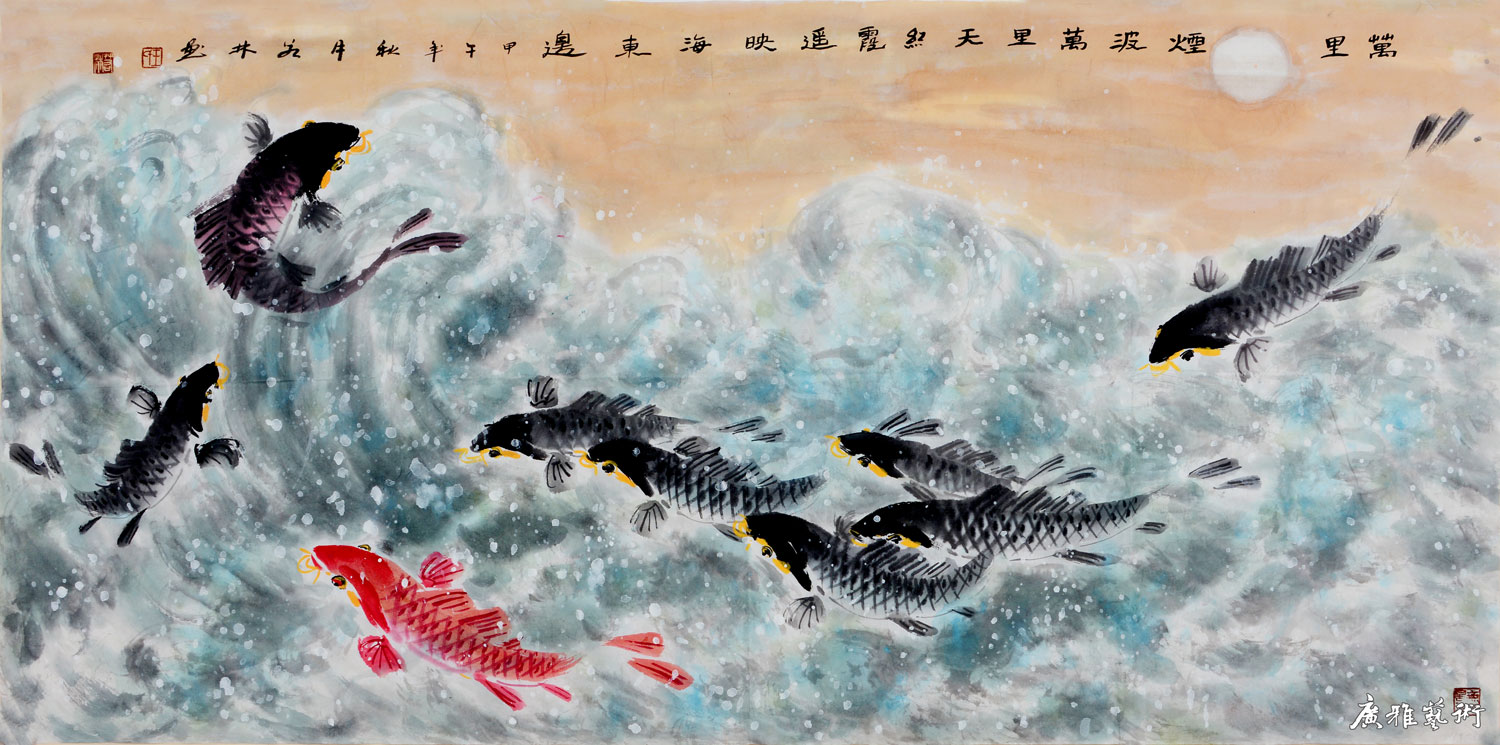 萬里煙波萬里天紅霞遥映海東邊甲午年秋月林畫
廣雅藝術